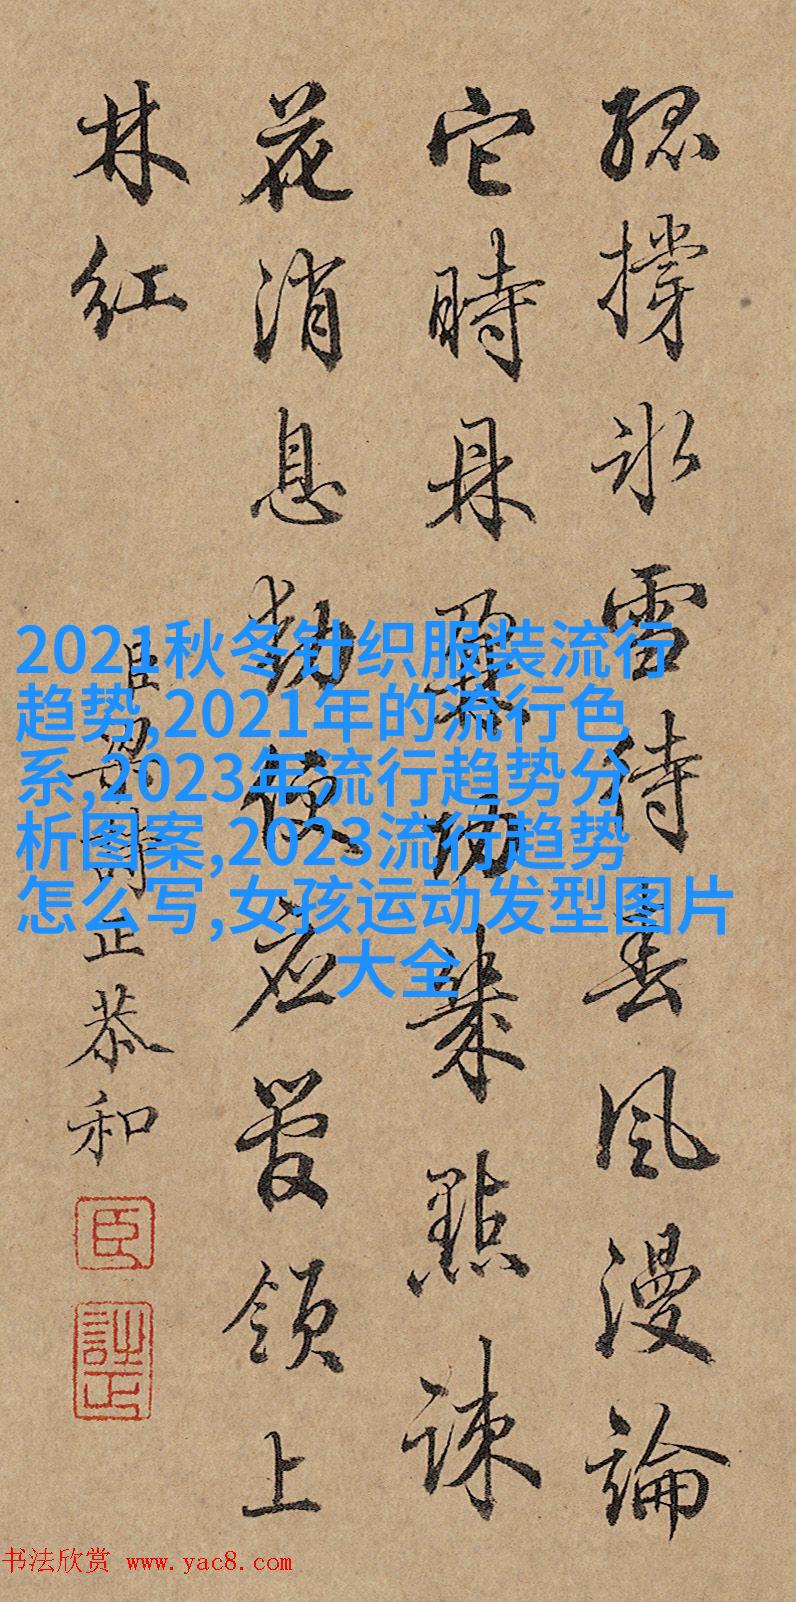 孤撑冰雪待春風漫論
它時鼎鼐功幾點疎
花消息動便应管領上
林紅
臣梁詩正恭和
臣
詩正
2021秋冬针织服装流行
趋势,2021年的流行色
系,2023年流行趋势分
析图案,2023流行趋势
怎么写,女孩运动发型图片
大全
书法欣赏 www.yac8.com